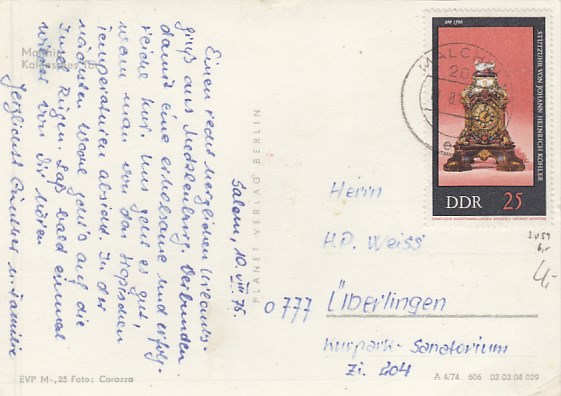 Salem, 10. VII. 76
Einen recht herzlichen Urlaubs-
gruß aus Mecklenburg. Verbunden
damit eine erholsame und erfolg-
reiche Kur. Uns geht es gut,
wenn man von den tropischen
Temperaturen absieht. In der
nächsten Woche geht's auf die
Insel Rügen. Laß bald einmal
wieder von Dir hören
Herzlichst Günther u. Familie
Malchin
PLANET VERLAG BERLIN
EVP M-,25 Foto: Corazza
MALCHIN
STUTZUHR VON JOHANN HEINRICH KÖHLER
DDR 25
2059
4,-
Herrn
H.P. Weiss
0777 Überlingen
Kurpark-Sanatorium
Zi. 204
A 4/74 606 02 03 04 029